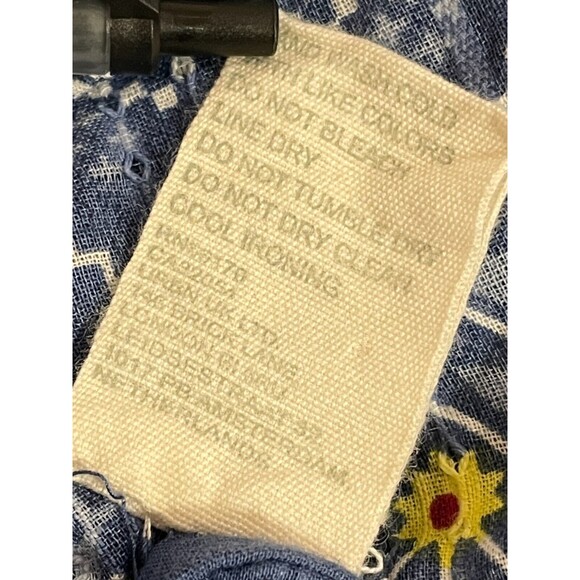 HAND WASH COLD
WITH LIKE COLORS
DO NOT BLEACH
LINE DRY
DO NOT TUMBLE DRY
DO NOT DRY CLEAN
COOL IRONING
URBN UK LTD.
BRICK LANE
LONDON
LEIDSESTRAAT
AMSTERDAM
NETHERLANDS